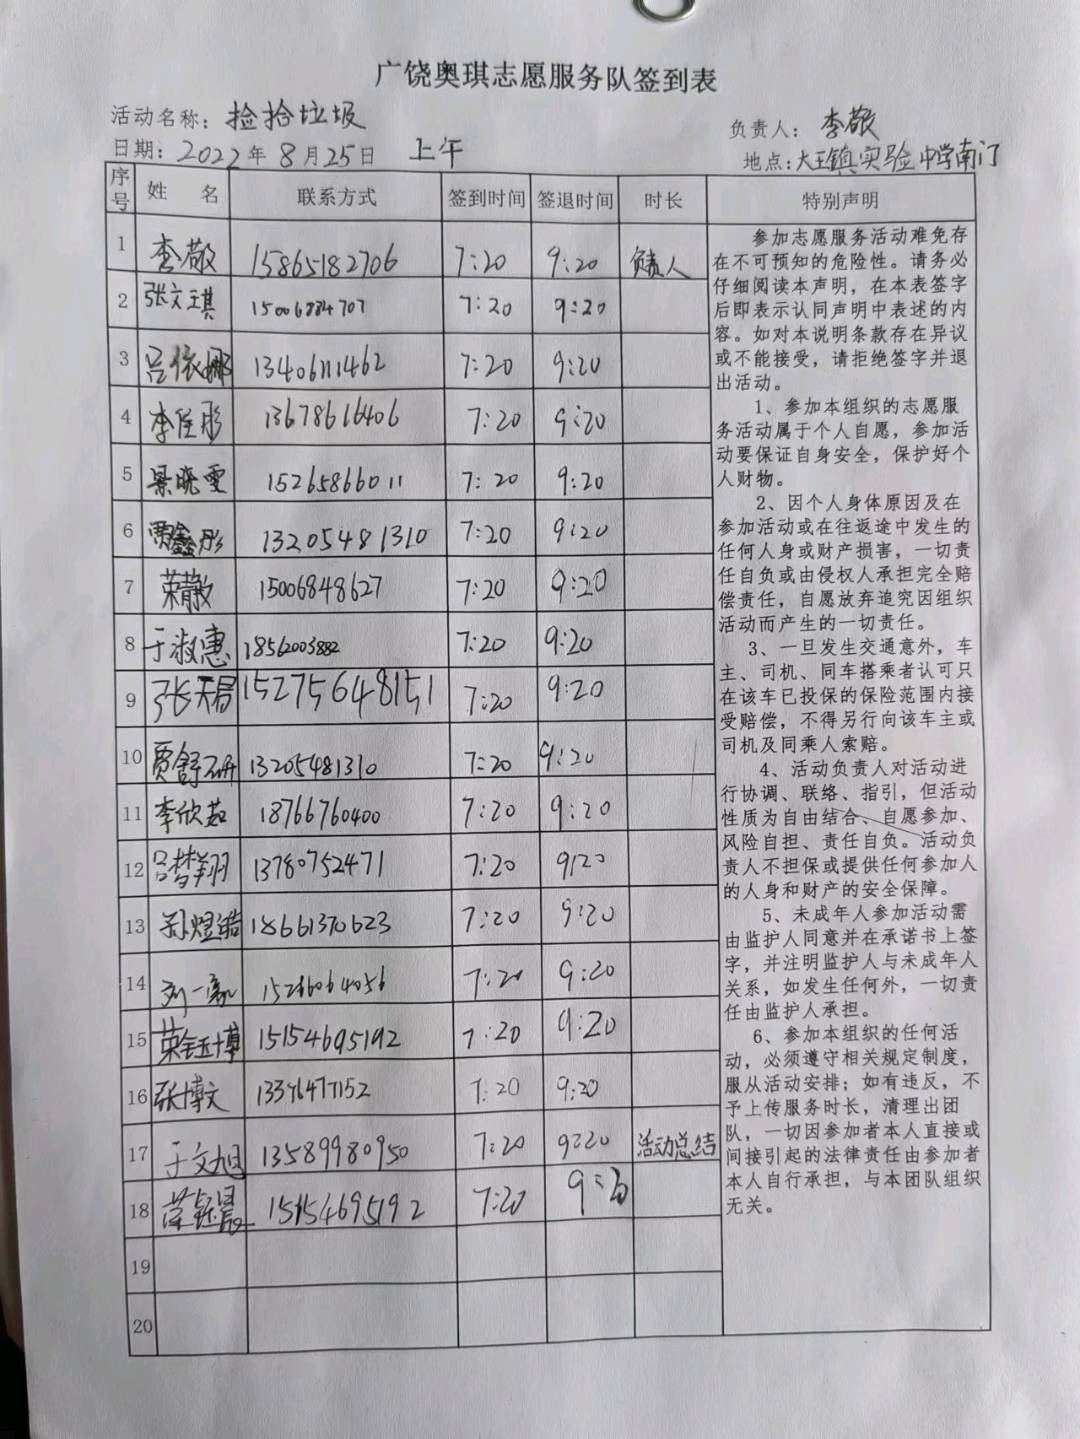 广饶奥琪志愿服务队签到表
活动名称：捡拾垃圾
负责人：李敬
日期：2022年8月25日 上午
地点：大王镇实验中学南门
序号 姓名 联系方式 签到时间 签退时间 时长 特别声明
1 李敬 15865182706 7:20 9:20 负责人
2 张文琪 15006884707 7:20 9:20
3 吕依娜 13406111462 7:20 9:20
4 李佳彤 13678616406 7:20 9:20
5 景晓雯 15265866011 7:20 9:20
6 贾鑫彤 13205481310 7:20 9:20
7 荣静 15006848627 7:20 9:20
8 于淑惠 18562003882 7:20 9:20
9 张天眉 15275648151 7:20 9:20
10 贾舒研 13205481310 7:20 9:20
11 李欣茹 18766760400 7:20 9:20
12 吕梦翔 13780752471 7:20 9:20
13 孙煜皓 18661370623 7:20 9:20
14 刘一 15266064056 7:20 9:20
15 荣钰博 15154695192 7:20 9:20
16 张博文 13396477152 7:20 9:20
17 于文旭 13589980950 7:20 9:20 活动总结
18 荣钰晨 15154695192 7:20 9:20
19
20
参加志愿服务活动难免存
在不可预知的危险性。请务必
仔细阅读本声明，在本表签字
后即表示认同声明中表述的内
容。如对本说明条款存在异议
或不能接受，请拒绝签字并退
出活动。
1、参加本组织的志愿服
务活动属于个人自愿，参加活
动要保证自身安全，保护好个
人财物。
2、因个人身体原因及在
参加活动或在往返途中发生的
任何人身或财产损害，一切责
任自负或由侵权人承担完全赔
偿责任，自愿放弃追究因组织
活动而产生的一切责任。
3、一旦发生交通意外，车
主、司机、同车搭乘者认可只
在该车已投保的保险范围内接
受赔偿，不得另行向该车主或
司机及同乘人索赔。
4、活动负责人对活动进
行协调、联络、指引，但活动
性质为自由结合、自愿参加、
风险自担、责任自负。活动负
责人不担保或提供任何参加人
的人身和财产的安全保障。
5、未成年人参加活动需
由监护人同意并在承诺书上签
字，并注明监护人与未成年人
关系，如发生任何外，一切责
任由监护人承担。
6、参加本组织的任何活
动，必须遵守相关规定制度，
服从活动安排；如有违反，不
予上传服务时长，清理出团
队，一切因参加者本人直接或
间接引起的法律责任由参加者
本人自行承担，与本团队组织
无关。